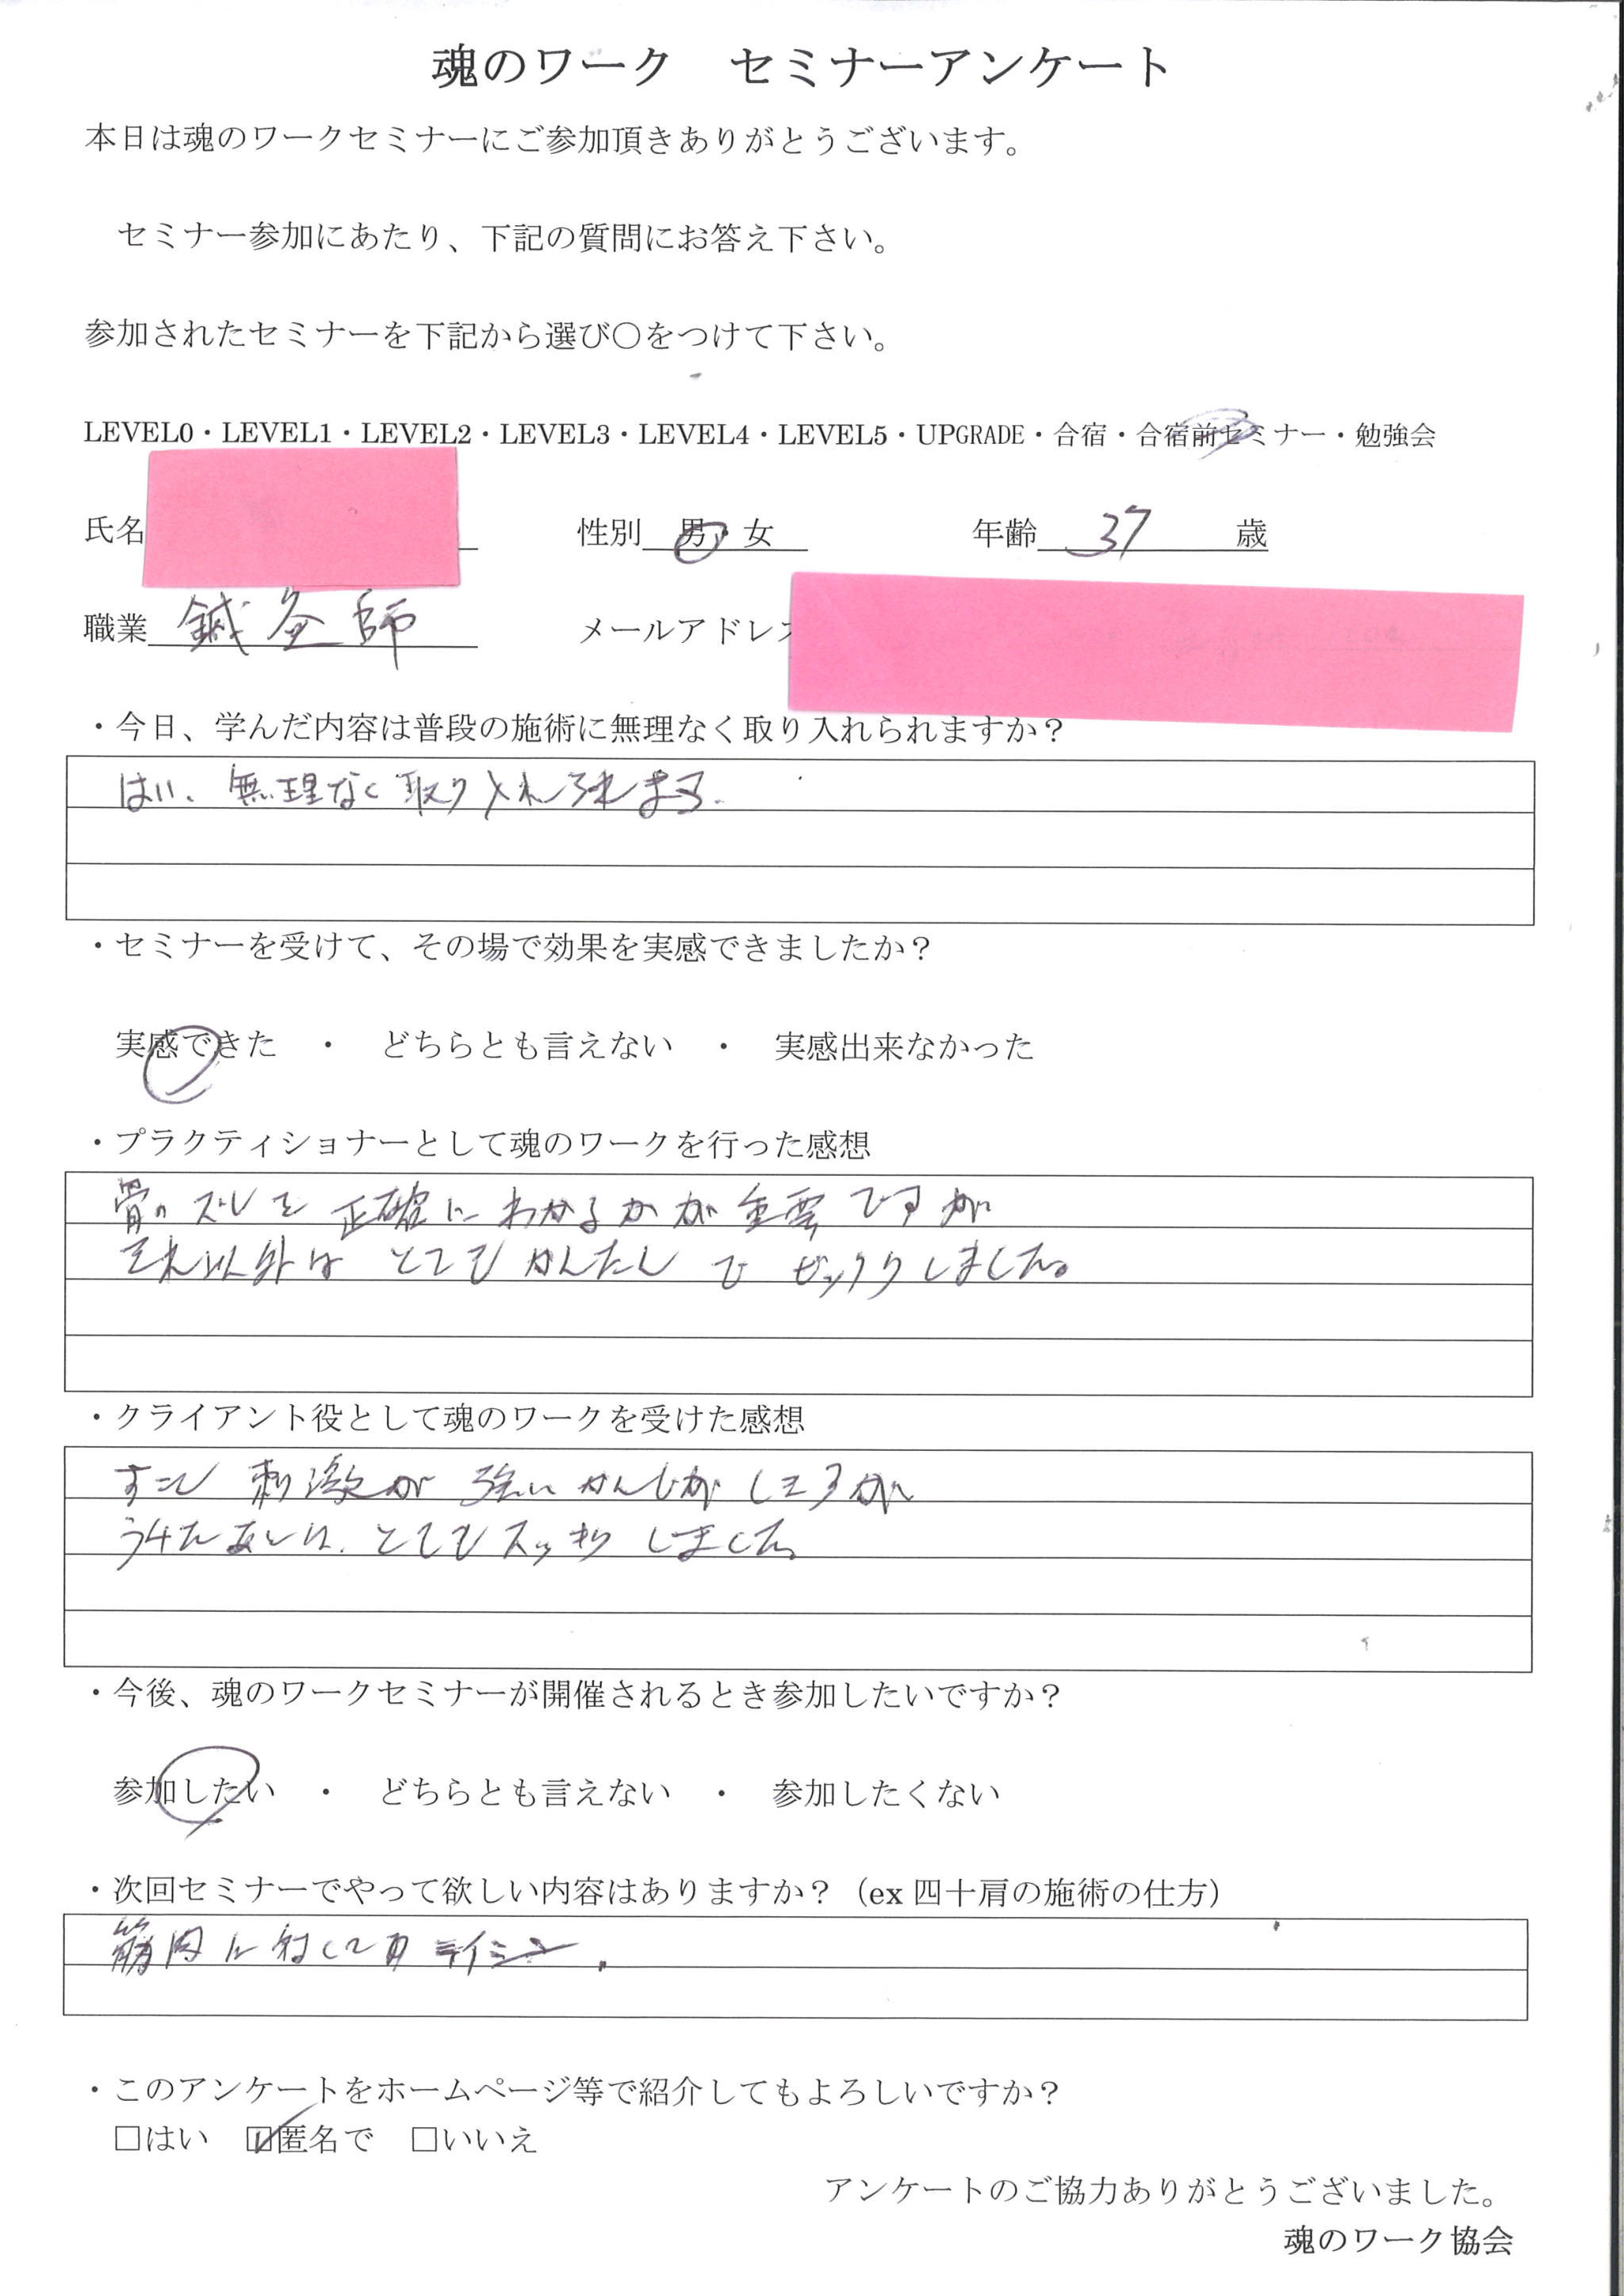 魂のワーク セミナーアンケート
本日は魂のワークセミナーにご参加頂きありがとうございます。
セミナー参加にあたり、下記の質問にお答え下さい。
参加されたセミナーを下記から選び○をつけて下さい。
LEVEL0・LEVEL1・LEVEL2・LEVEL3・LEVEL4・LEVEL5・UPGRADE・合宿・合宿前セミナー・勉強会
氏名 性別 男・女 年齢 37 歳
職業 鍼灸師 メールアドレス
・今日、学んだ内容は普段の施術に無理なく取り入れられますか？
はい、無理なく取り入れられます.
・セミナーを受けて、その場で効果を実感できましたか？
実感できた ・ どちらとも言えない ・ 実感出来なかった
・プラクティショナーとして魂のワークを行った感想
骨のズレを正確にわかるかが重要ですが
それ以外はとてもかんたんでビックリしました。
・クライアント役として魂のワークを受けた感想
すこし刺激が強いかんじが
うけたあとは、とてもスッキリしました。
・今後、魂のワークセミナーが開催されるとき参加したいですか？
参加したい ・ どちらとも言えない ・ 参加したくない
・次回セミナーでやって欲しい内容はありますか？（ex 四十肩の施術の仕方）
筋肉に対して
・このアンケートをホームページ等で紹介してもよろしいですか？
□はい ☑匿名で □いいえ
アンケートのご協力ありがとうございました。
魂のワーク協会